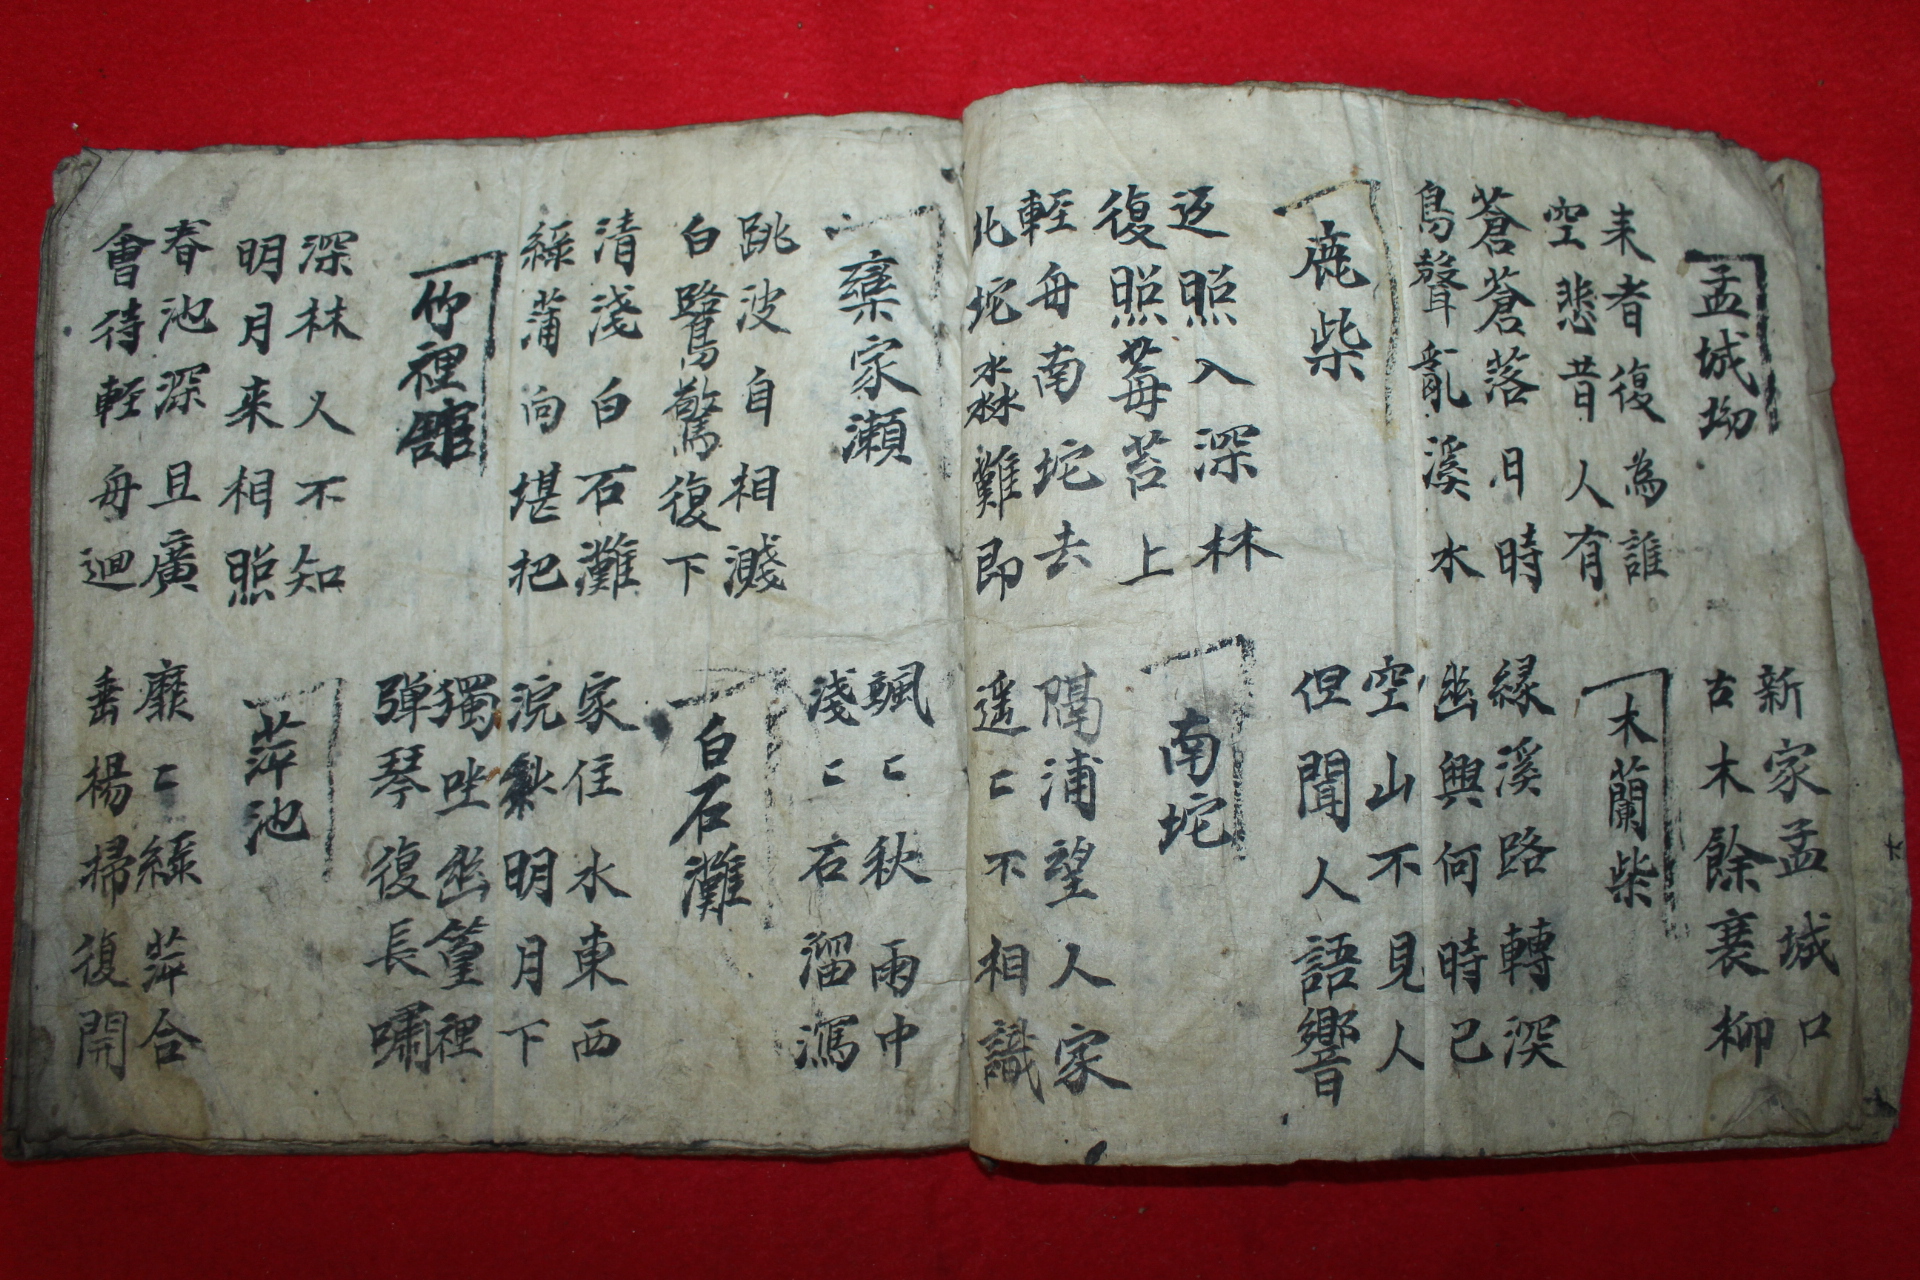 孟城坳
新家孟城口
古木餘衰柳
来者復為誰
空悲昔人有
木蘭柴
蒼蒼落日時
鳥聲亂溪水
緣溪路轉深
幽興何時已
鹿柴
空山不見人
但聞人語響
返照入深林
復照莓苔上
南垞
輕舟南垞去
北垞淼難即
隔浦望人家
遥〻不相識
欒家瀬
颯〻秋雨中
淺〻石溜瀉
跳波自相濺
白鷺驚復下
白石灘
清淺白石灘
緑蒲向堪把
家住水東西
浣紗明月下
竹裡舘
獨坐幽篁裡
弾琴復長嘯
深林人不知
明月来相照
萍池
春池深且廣
會待軽舟迴
靡〻緑萍合
垂楊掃復開